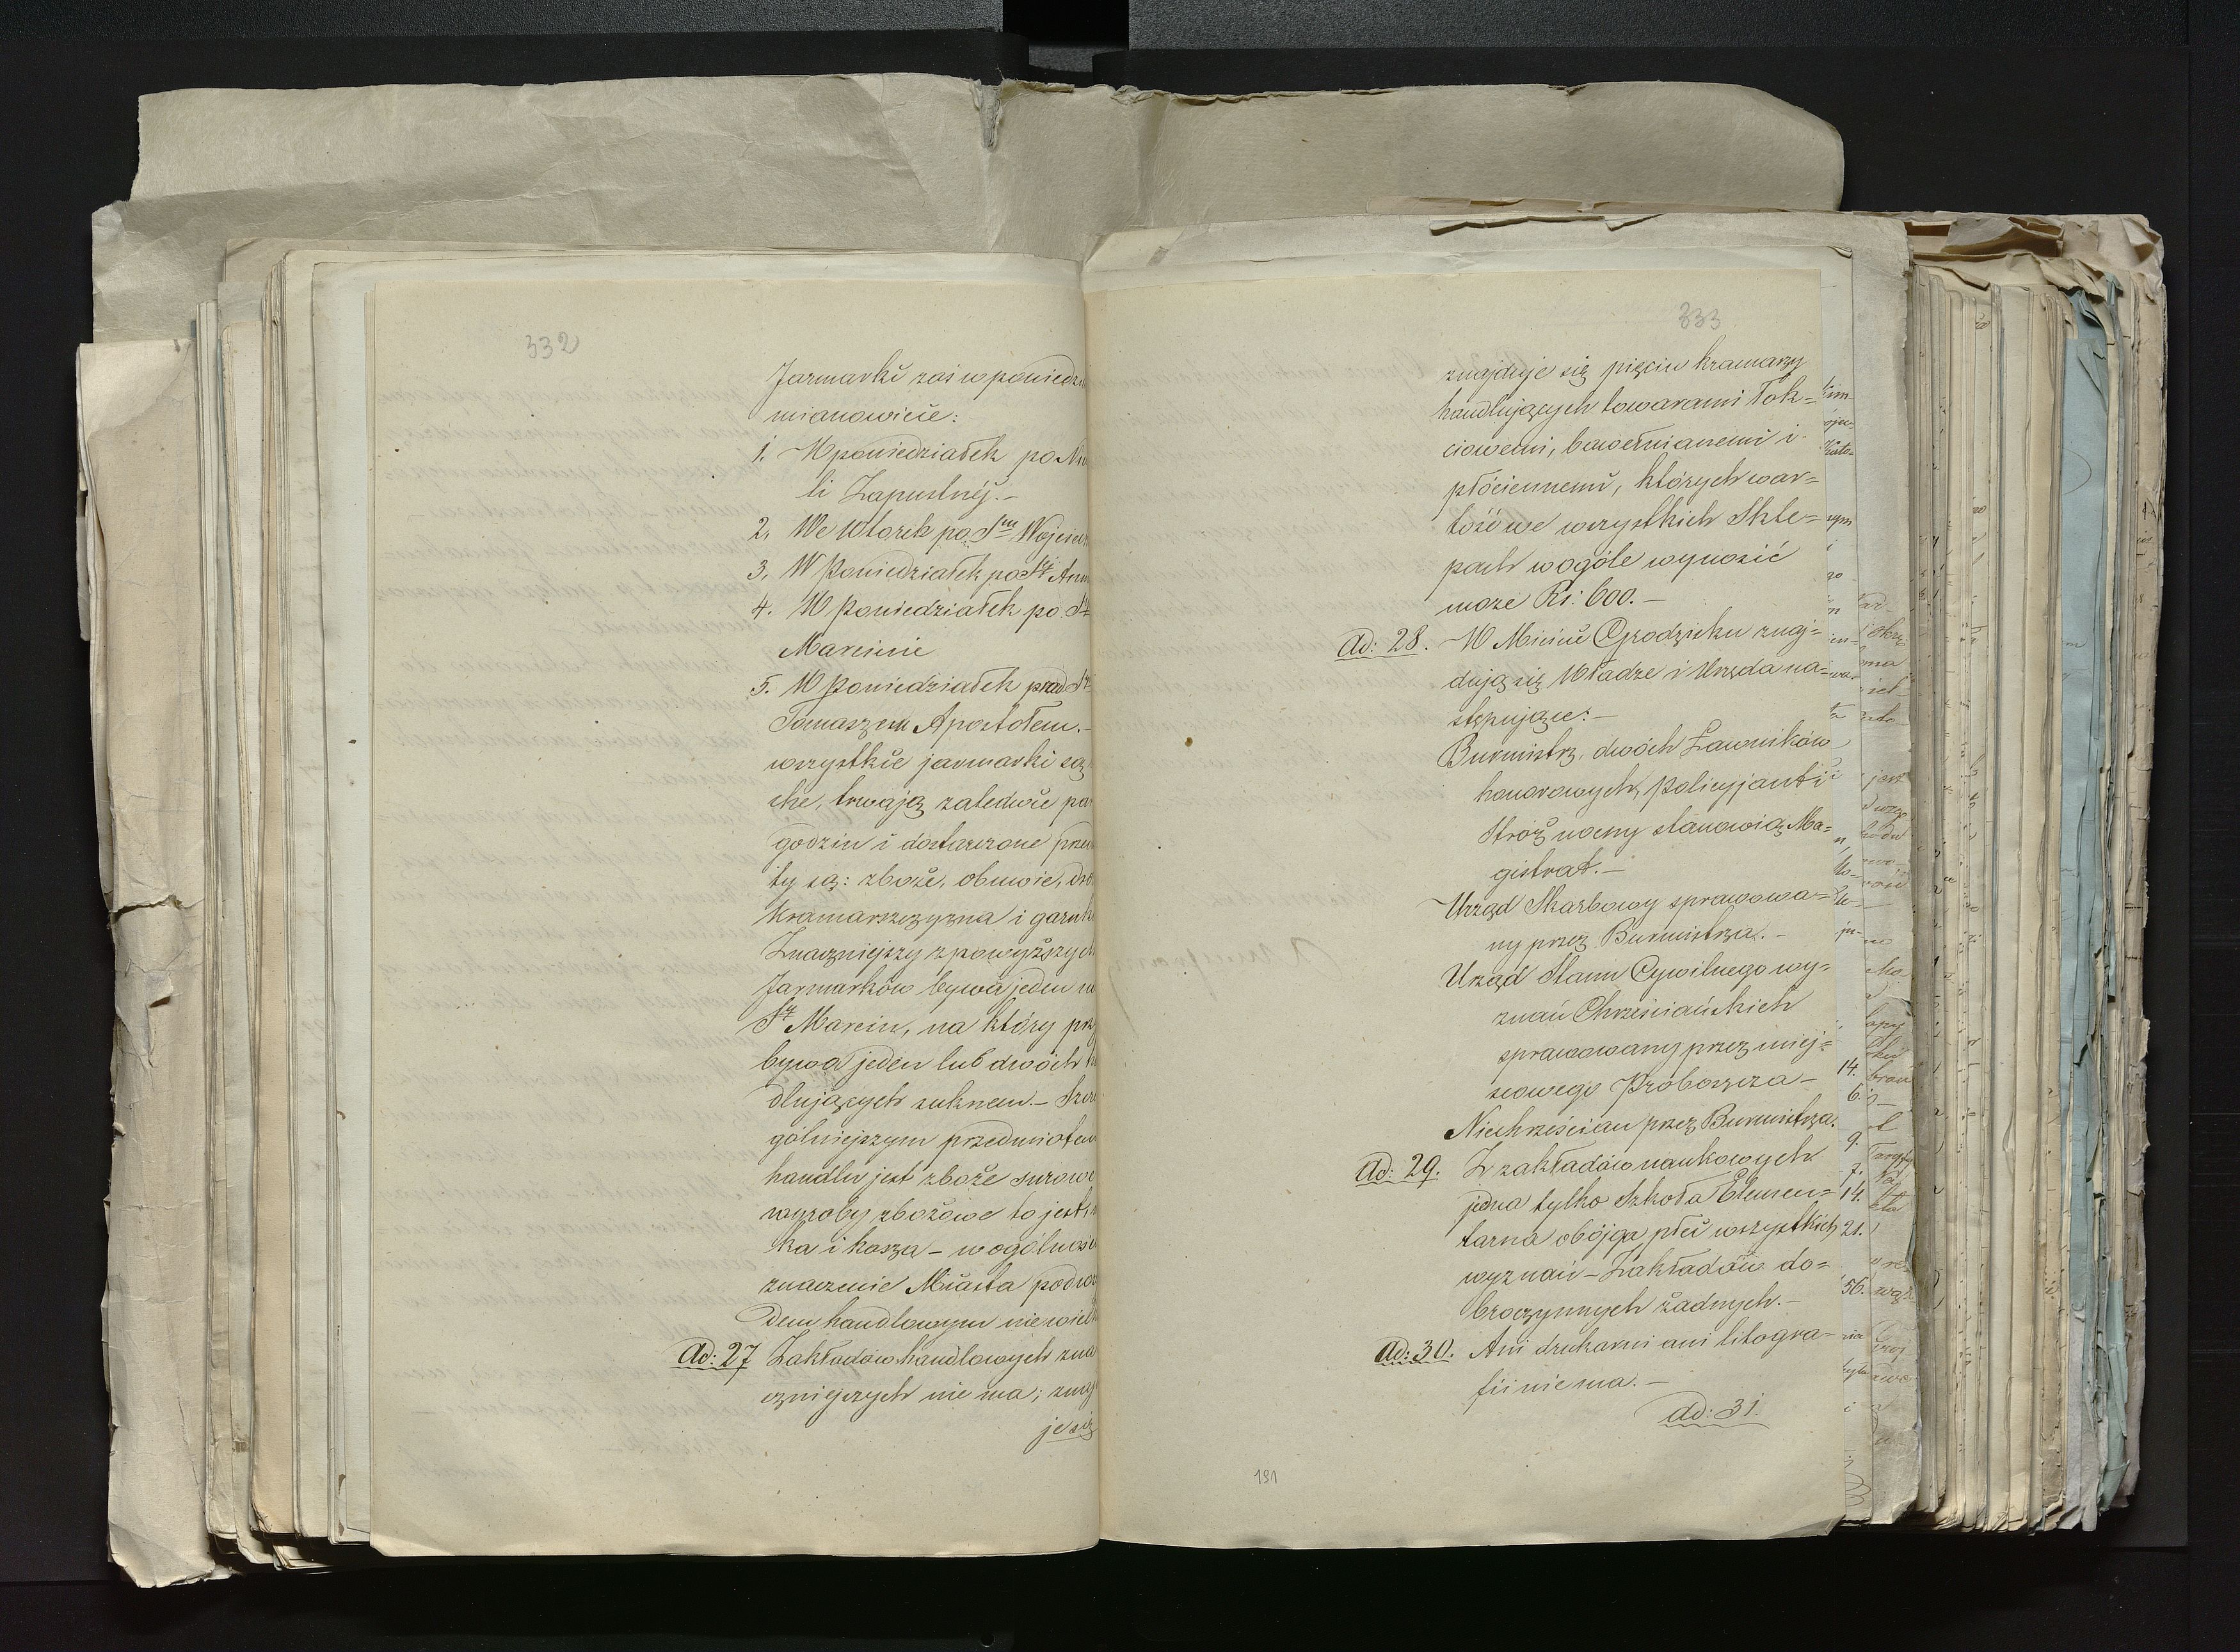 332
Jarmarki zaś w poniedzi
mianowicie:
1. W poniedziałek po Nie
li Zapustnéj.-
2. We Wtorek po Sm Wojciech
3. W Poniedziałek po St Ann
4. W Poniedziałek po St
Marcinie
5. W Poniedziałek przed St
Tomaszem Apostołem.-
wszystkie jarmarki są
che, trwają zaledwie par
godzin i dostarczone przed
ty są: zboże, obuwie, dro
kramarszczyzna i garnk
Znaczniejszy z powyższych
Jarmarków bywa jeden n
St Marcin, na który prz
bywa jeden lub dwóch h
dlujących suknem.- Szcze
gólniejszym przedmiotem
handlu jest zboże surowe
wyroby zbożowe to jest, m
ka i kasza - w ogólności
znaczenie Miasta pod wzg
dem handlowym niewielk
Ad: 27 Zakładów handlowych zna
czniejszych nie ma; znaj
je się
333
znajduje się pięciu kramarzy
handlujących towarami łok=
ciowemi, bawełnianemi i
płóciennemi, których war=
tość we wszystkich Skle=
pach w ogóle wynosić
może Rs: 600.-
Ad: 28. W Mieście Grodzisku znaj=
dują się Władze i Urzęda na=
stępujące:-
Burmistrz, dwóch Ławników
honorowych, policyjant i
Stróż nocny stanowią Ma=
gistrat.-
Urząd Skarbowy sprawowa=
ny przez Burmistrza.-
Urząd Stanu Cywilnego wy=
znań Chrześciańskich
sprawowany przez miej=
scowego Proboszcza-
Niechrześcian przez Burmistrza.
Ad: 29. Z zakładów naukowych
jedna tylko Szkoła Elemen=
tarna obójga płci wszystkich
wyznań - Zakładów do=
broczynnych żadnych.-
Ad: 30. Ani drukarni ani litogra-
fii nie ma.-
Ad: 31.
191
14.
6.
9.
7.
14.
21.
56.